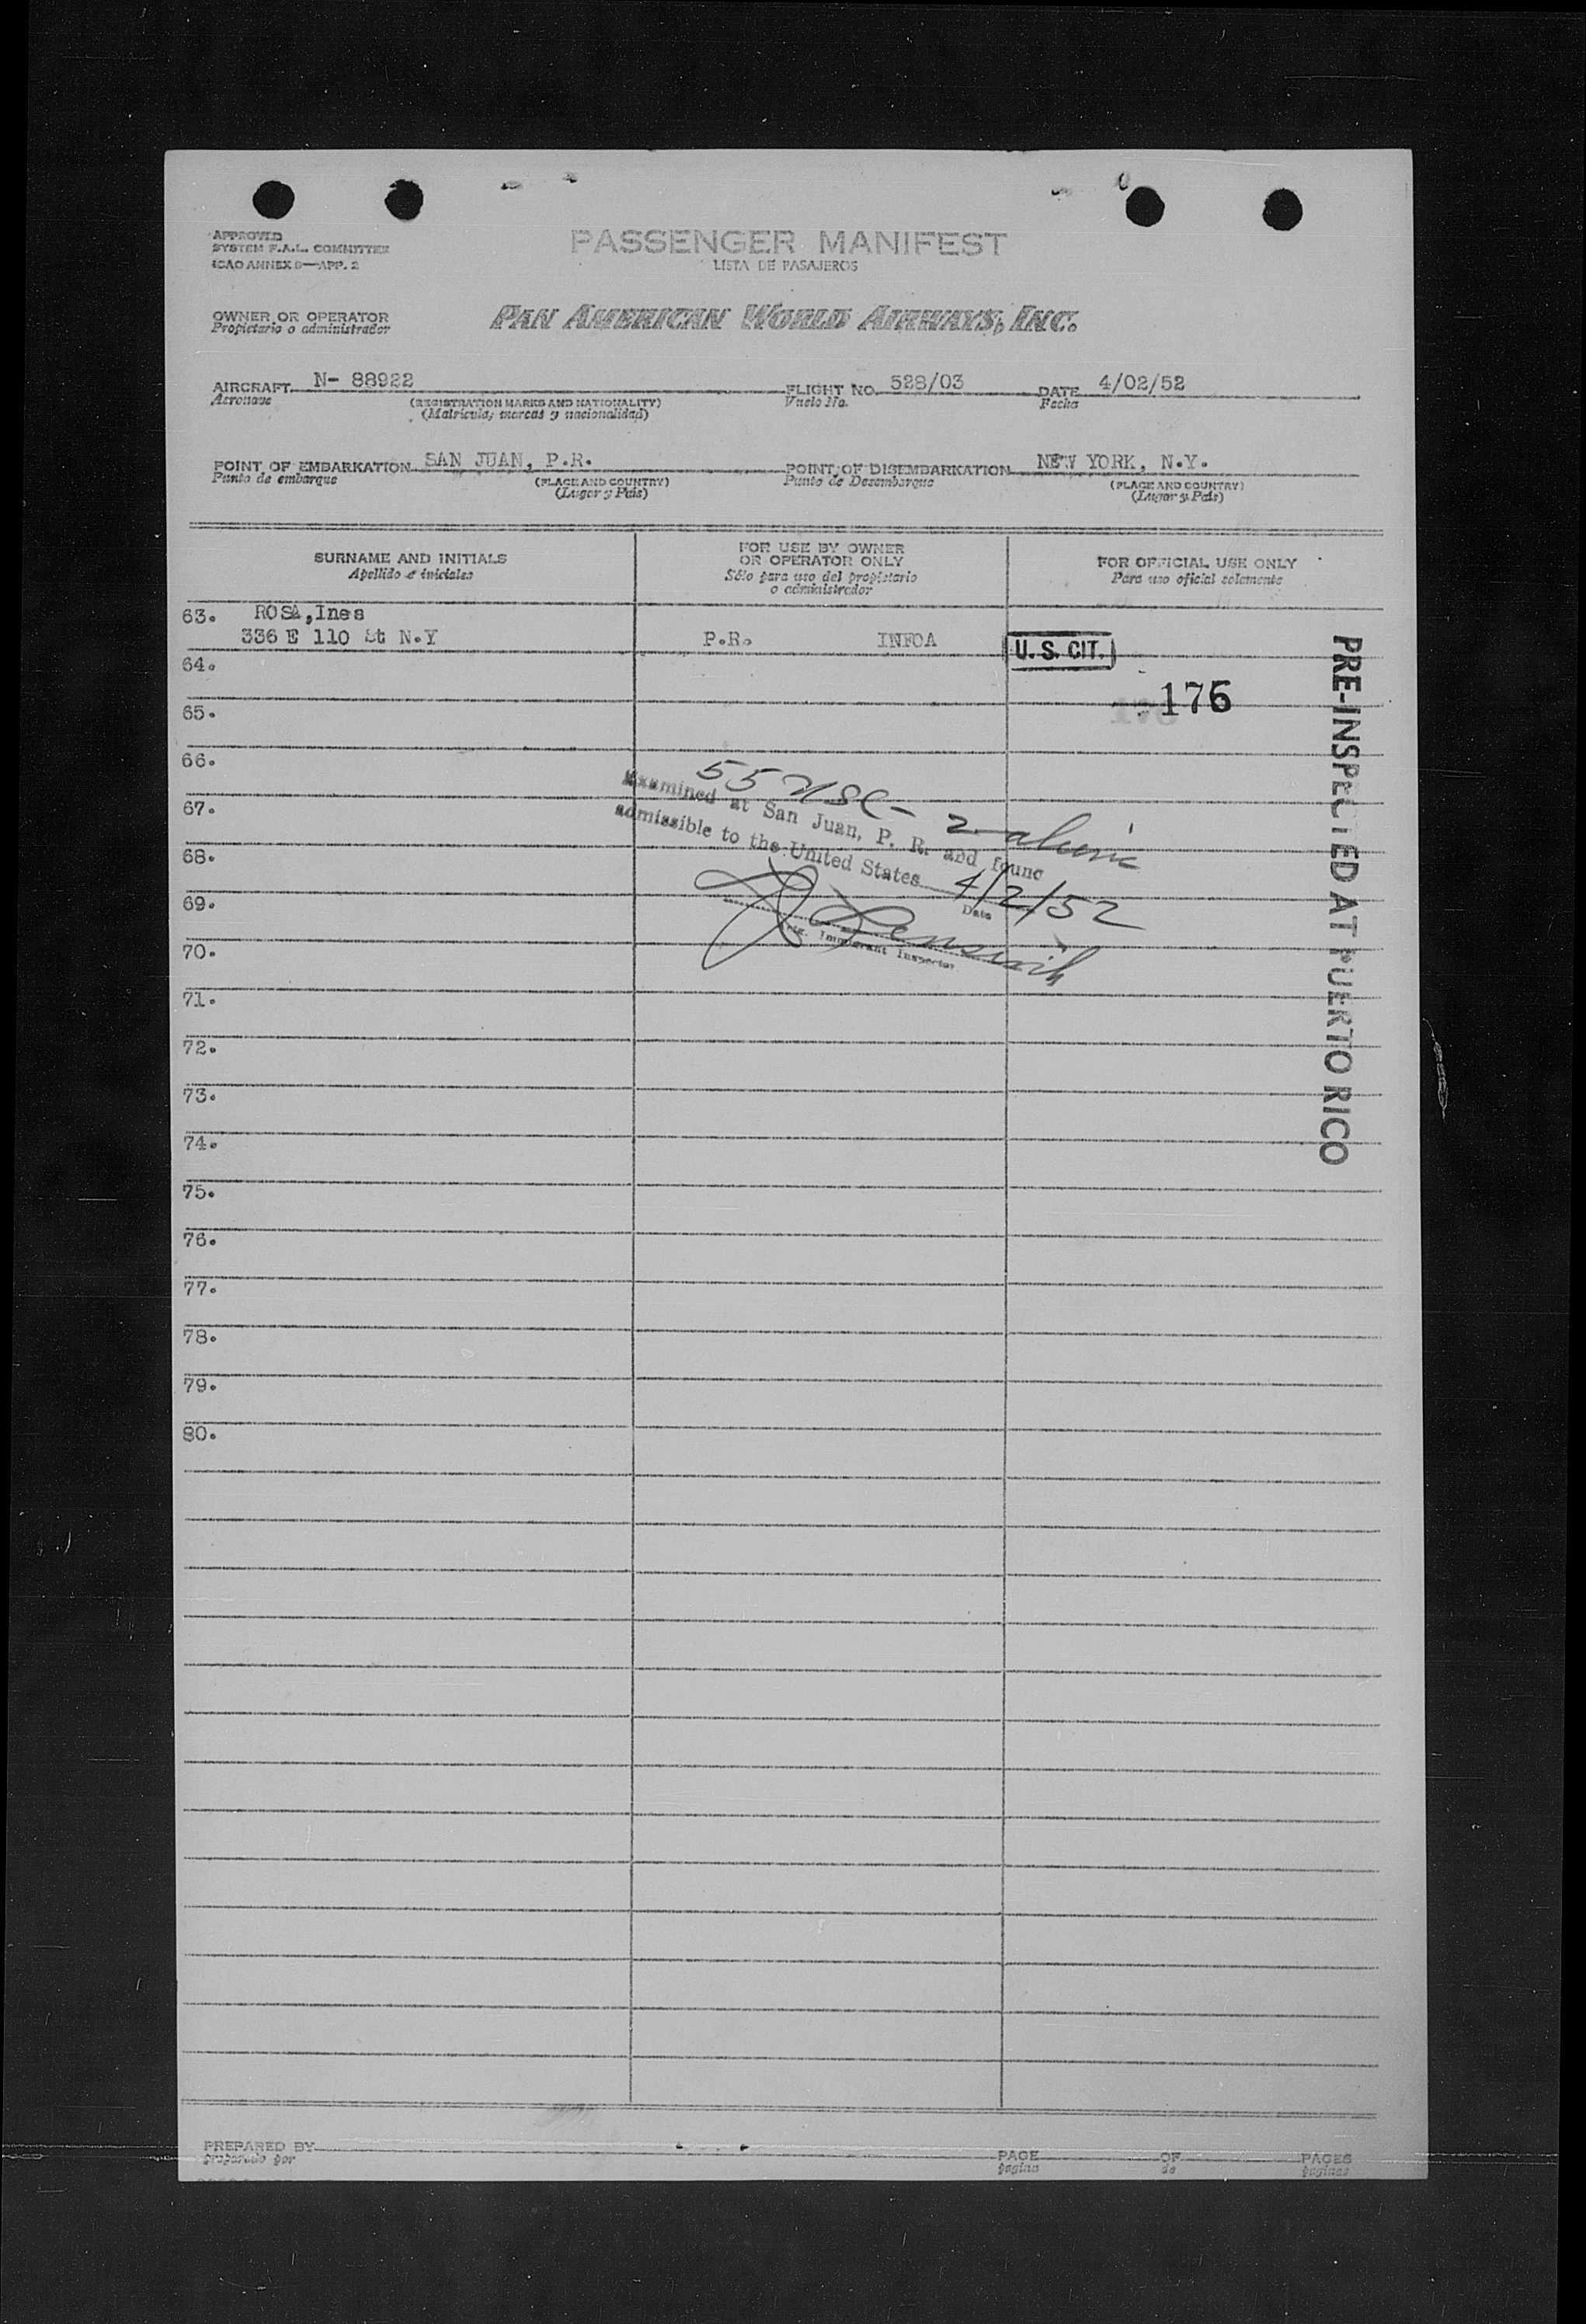 APPROVED
SYSTEM F.A.L. COMMITTEE
ICAO ANNEX 9—APP. 2
PASSENGER MANIFEST
LISTA DE PASAJEROS
OWNER OR OPERATOR
Propietario o administrador
PAN AMERICAN WORLD AIRWAYS, INC.
AIRCRAFT N- 88922 FLIGHT NO. 528/03 DATE 4/02/52
Aeronave (REGISTRATION MARKS AND NATIONALITY) Vuelo No. Fecha
(Matrícula, marcas y nacionalidad)
POINT OF EMBARKATION SAN JUAN, P.R. POINT OF DISEMBARKATION NEW YORK, N.Y.
Punto de embarque (PLACE AND COUNTRY) Punto de Desembarque (PLACE AND COUNTRY)
(Lugar y País) (Lugar y País)
SURNAME AND INITIALS
Apellido e iniciales
FOR USE BY OWNER
OR OPERATOR ONLY
Sólo para uso del propietario
o administrador
FOR OFFICIAL USE ONLY
Para uso oficial solamente
63. ROSA,Ines
336 E 110 St N.Y P.R. INFOA U. S. CIT.
64.
176
65.
66.
55 USC - 2 aliens
67.
Examined at San Juan, P. R. and found
68.
admissible to the United States 4/2/52
Date
69.
70.
Immigrant Inspector
71.
72.
73.
74.
75.
76.
77.
78.
79.
80.
PRE-INSPECTED AT PUERTO RICO
PREPARED BY PAGE OF PAGES
preparado por página de páginas